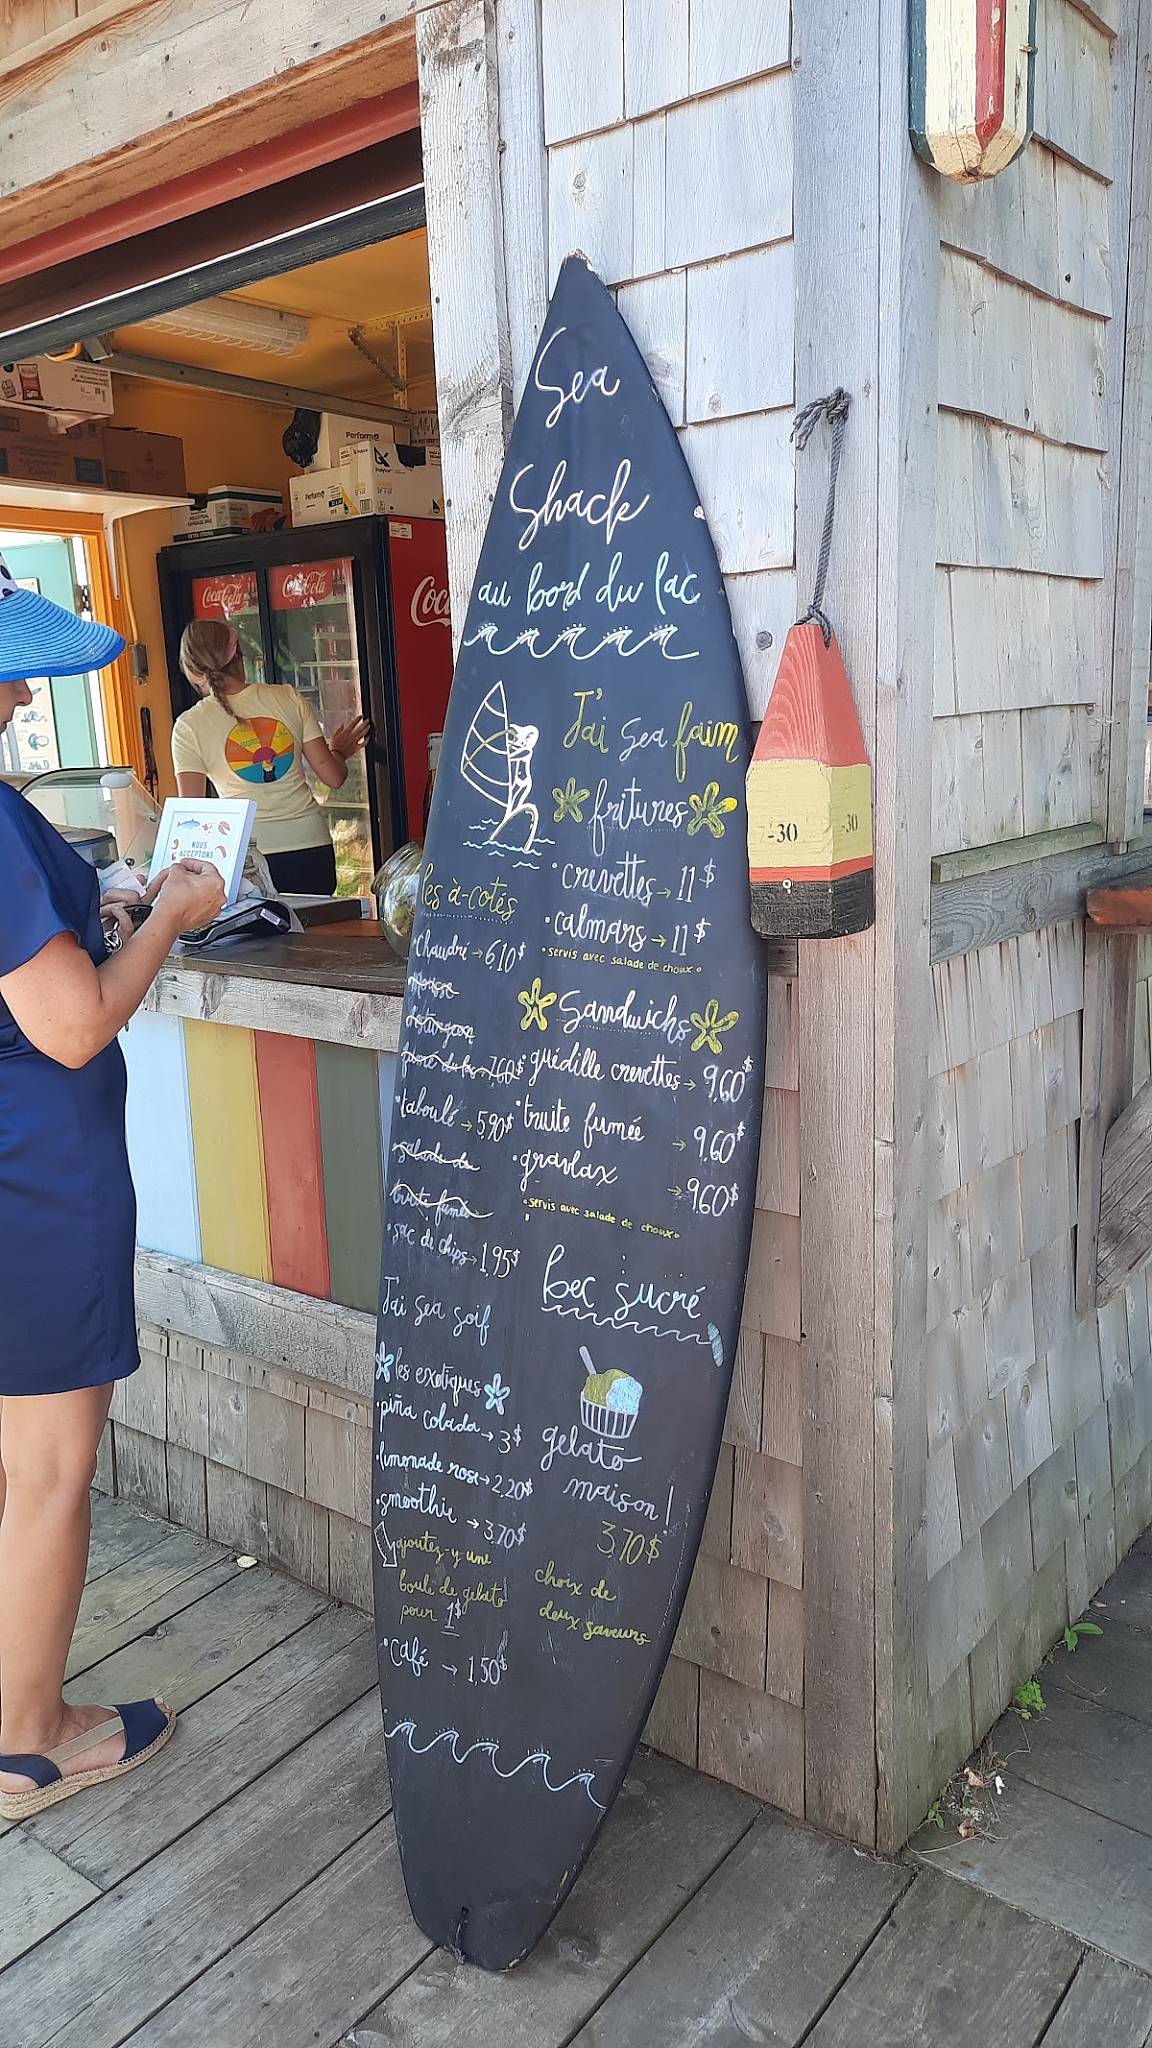 Sea
Shack
au bord du lac
J'ai Sea faim
fritures
• crevettes → 11$
• calmars → 11$
• servis avec salade de choux •
Sandwichs
• guédille crevettes → 9,60$
• truite fumée → 9,60$
• gravlax → 9,60$
• servis avec salade de choux •
les à-côtés
• Chaudré → 6,10$
mousse
d'esturgeon
fumé du lac 7,60$
• taboulé → 5,90$
salade de
truite fumée
• sac de chips → 1,95$
J'ai Sea soif
les exotiques
• piña colada → 3$
• limonade rose → 2,20$
• smoothie → 3,70$
ajoutez-y une
boule de gelato
pour 1$
• café → 1,50$
bec sucré
gelato
maison!
3,70$
choix de
deux saveurs
-30
-30
NOUS
ACCEPTONS
Coca-Cola
Coca-Cola
Coca
Perform
Perform